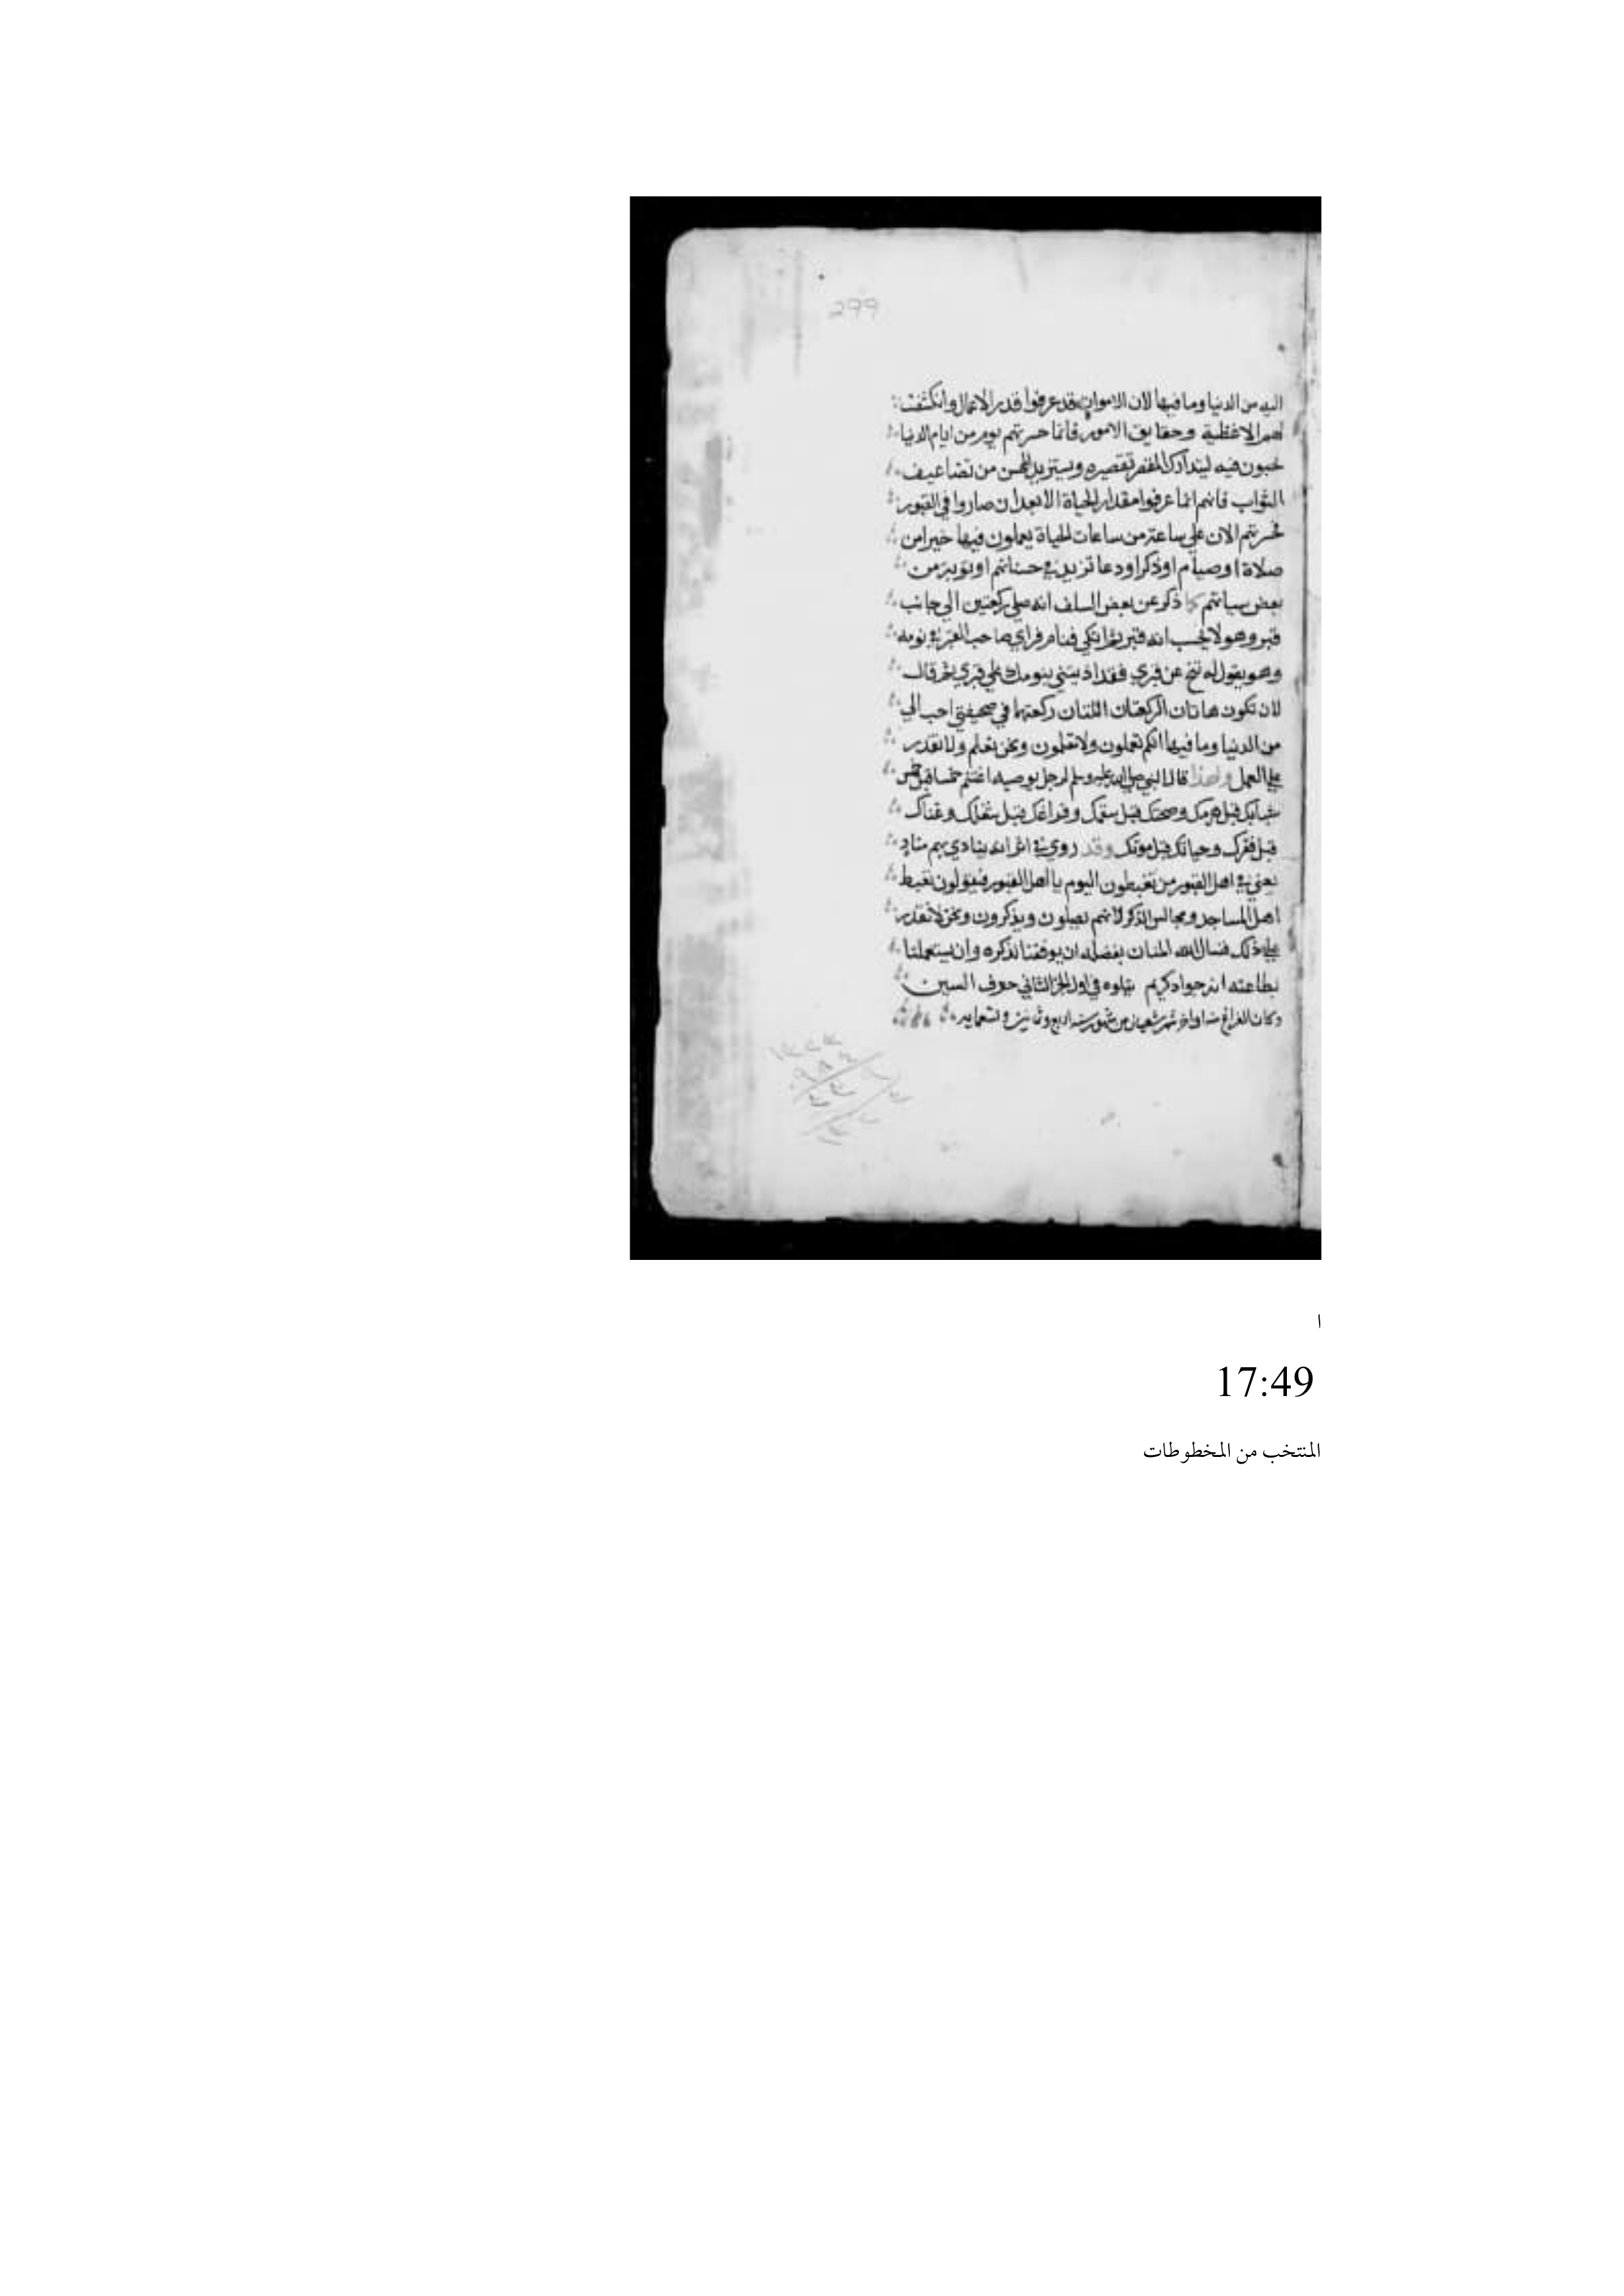 299
اليه من الدنيا وما فيها لان الاموات قد عرفوا قدر الاعمال وانكشفت
لهم الاغطية وحقايق الامور فانما حسرتهم يوم من ايام الدنيا
يحيون فيه ليتدارك المقصر تقصيره ويستزيد المحسن من تضاعيف
الثواب فانهم انما عرفوا مقدار الحياة الا بعد ان صاروا في القبور
فحسرتهم الان علي ساعة من ساعات الحياة يعملون فيها خيرا من
صلاة او صيام او ذكر او دعا تزيد في حسناتهم او توبة من
بعض سياتهم كما ذكر عن بعض السلف انه صلي ركعتين الي جانب
قبر وهو لا يحسب انه قبر ثم اتكي فنام فراي صاحب القبر في نومه
وهو يقول له تنح عن قبري فقد اذيتني بنومك علي قبري ثم قال
لان تكون هاتان الركعتان اللتان ركعتهما في صحيفتي احب الي
من الدنيا وما فيها انكم تعملون ولا تعلمون ونحن نعلم ولا نقدر
علي العمل ولهذا قال النبي صلي الله عليه وسلم لرجل يوصيه اغتنم خمسا قبل خمس
شبابك قبل هرمك وصحتك قبل سقمك وفراغك قبل شغلك وغناك
قبل فقرك وحياتك قبل موتك وقد روي في اثر انه ينادي بهم مناد
يعني في اهل القبور من تغبطون اليوم يا اهل القبور فيقولون نغبط
اهل المساجد ومجالس الذكر لانهم يصلون ويذكرون ونحن لا نقدر
علي ذلك فنسال الله المنان بفضله ان يوفقنا لذكره وان يستعملنا
بطاعته انه جواد كريم يتلوه في اول الجز الثاني حرف السين
وكان الفراغ منه اواخر شهر شعبان من شهور سنه اربع وثمانين وتسعمايه
ا
17:49
المنتخب من المخطوطات